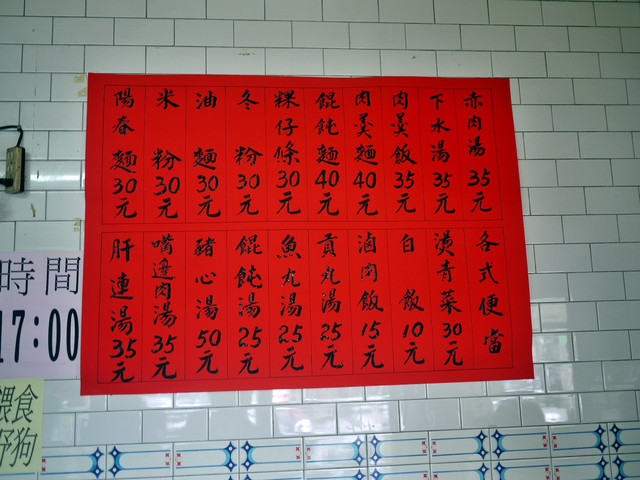 赤肉湯35元
下水湯35元
肉羹飯35元
肉羹麵40元
餛飩麵40元
粿仔條30元
冬粉30元
油麵30元
米粉30元
陽春麵30元
各式便當
燙青菜30元
白飯10元
滷肉飯15元
貢丸湯25元
魚丸湯25元
餛飩湯25元
豬心湯50元
嘴邊肉湯35元
肝連湯35元
時間
17:00
餵食
野狗